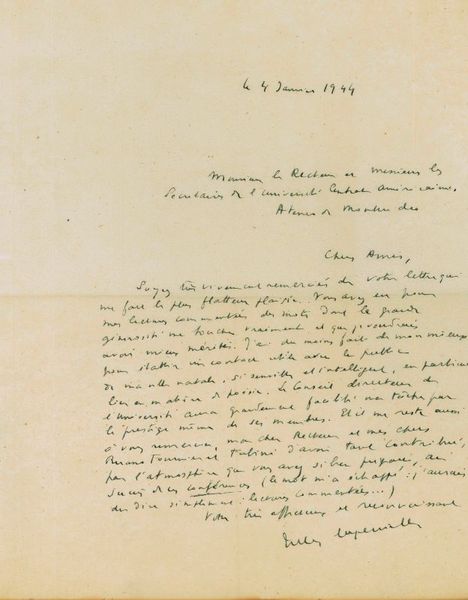 le 4 Janvier 1944
Monsieur le Recteur et Messieurs les
Secrétaires de l'université Centrale américaine,
Ateneo de Montevideo
Chers Amis,
Soyez très vivement remerciés de votre lettre qui
me fait le plus flatteur plaisir. Vous avez eu pour
mes lectures commentées des mots dont la grande
générosité me touche vraiment et que je voudrais
avoir mieux mérités. J'ai du moins fait de mon mieux
pour établir un contact utile avec le public
de ma ville natale, si sensible et intelligent, en particulier
en matière de poésie. Le Conseil directeur de
l'université aura grandement facilité ma tâche par
le prestige même de ses membres. Et il me reste aussi
à vous remercier, mon cher Recteur et mes chers
d'avoir tant contribué,
par l'atmosphère que vous avez si bien préparée, au
succès de ces conférences (le mot m'a échappé : j'aurais
dû dire simplement : lectures commentées...)
Votre très affectueux et reconnaissant
Jules Supervielle